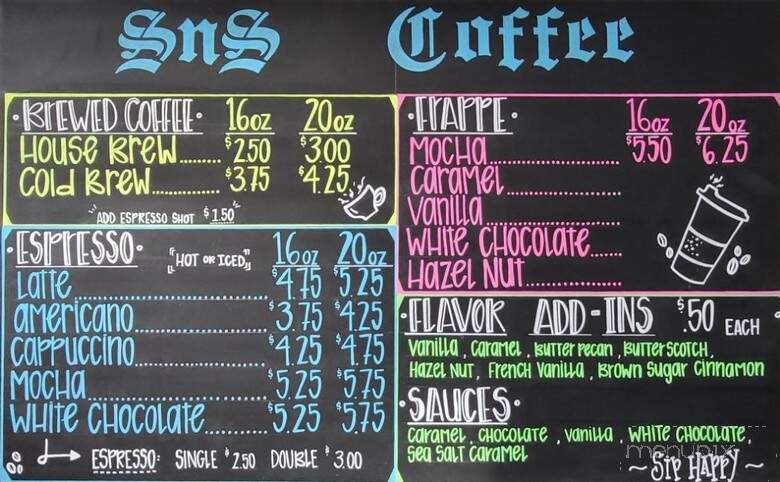 SnS Coffee
·BREWED COFFEE· 16oz 20oz
HOUSE BREW....... $2.50 $3.00
COLD BREW.......... $3.75 $4.25
"ADD ESPRESSO SHOT $1.50"
·ESPRESSO· "HOT OR ICED" 16oz 20oz
LATTE.............................. $4.75 $5.25
AMERICANO..................... $3.75 $4.25
CAPPUCCINO..................... $4.25 $4.75
MOCHA............................ $5.25 $5.75
WHITE CHOCOLATE.......... $5.25 $5.75
ESPRESSO: SINGLE $2.50 DOUBLE $3.00
·FRAPPE· 16oz 20oz
MOCHA..................... $5.50 $6.25
CARAMEL..................
VANILLA.....................
WHITE CHOCOLATE.....
HAZEL NUT...............
·FLAVOR ADD-INS $.50 EACH
VANILLA, CARAMEL, BUTTER PECAN, BUTTERSCOTCH,
HAZEL NUT, FRENCH VANILLA, BROWN SUGAR CINNAMON
·SAUCES·
CARAMEL, CHOCOLATE, VANILLA, WHITE CHOCOLATE,
SEA SALT CARAMEL
menupix
~SIP HAPPY~